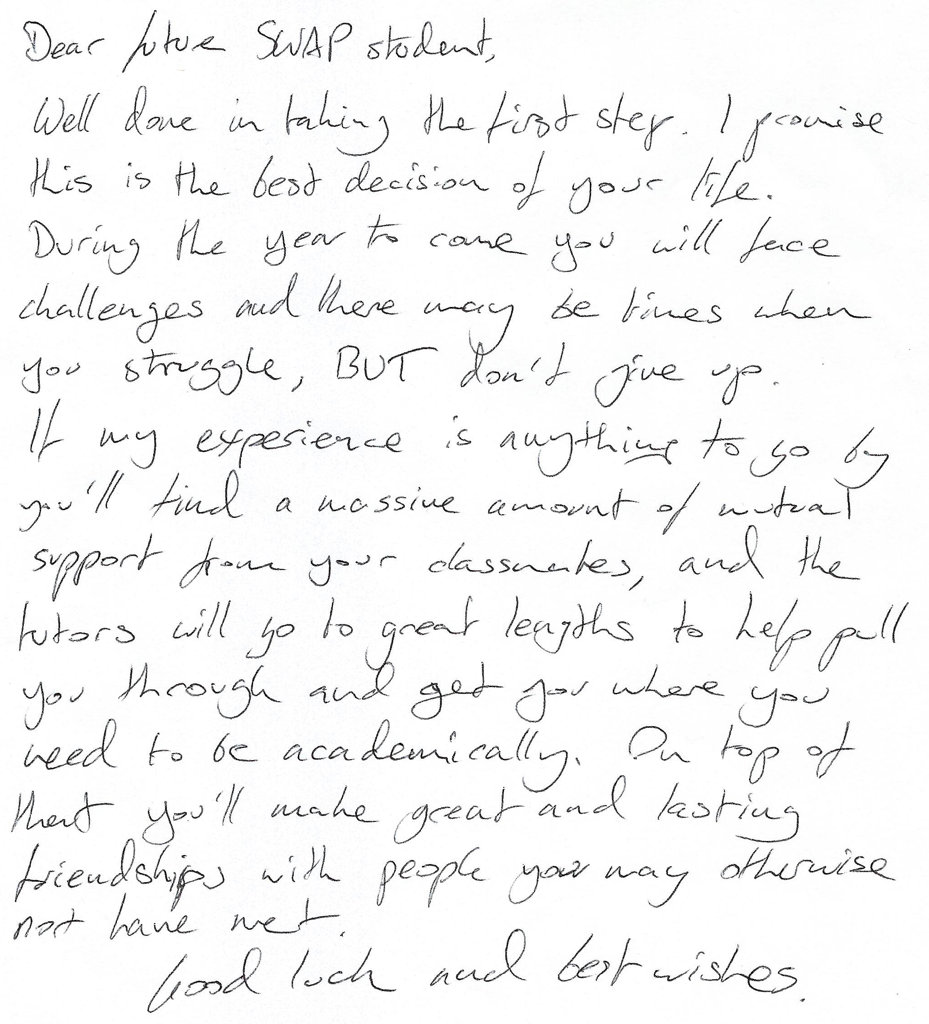 Dear future SWAP student,
Well done in taking the first step. I promise
this is the best decision of your life.
During the year to come you will face
challenges and there may be times when
you struggle, BUT don't give up.
If my experience is anything to go by
you'll find a massive amount of mutual
support from your classmates, and the
tutors will go to great lengths to help pull
you through and get you where you
need to be academically. On top of
that you'll make great and lasting
friendships with people you may otherwise
not have met.
Good luck and best wishes.